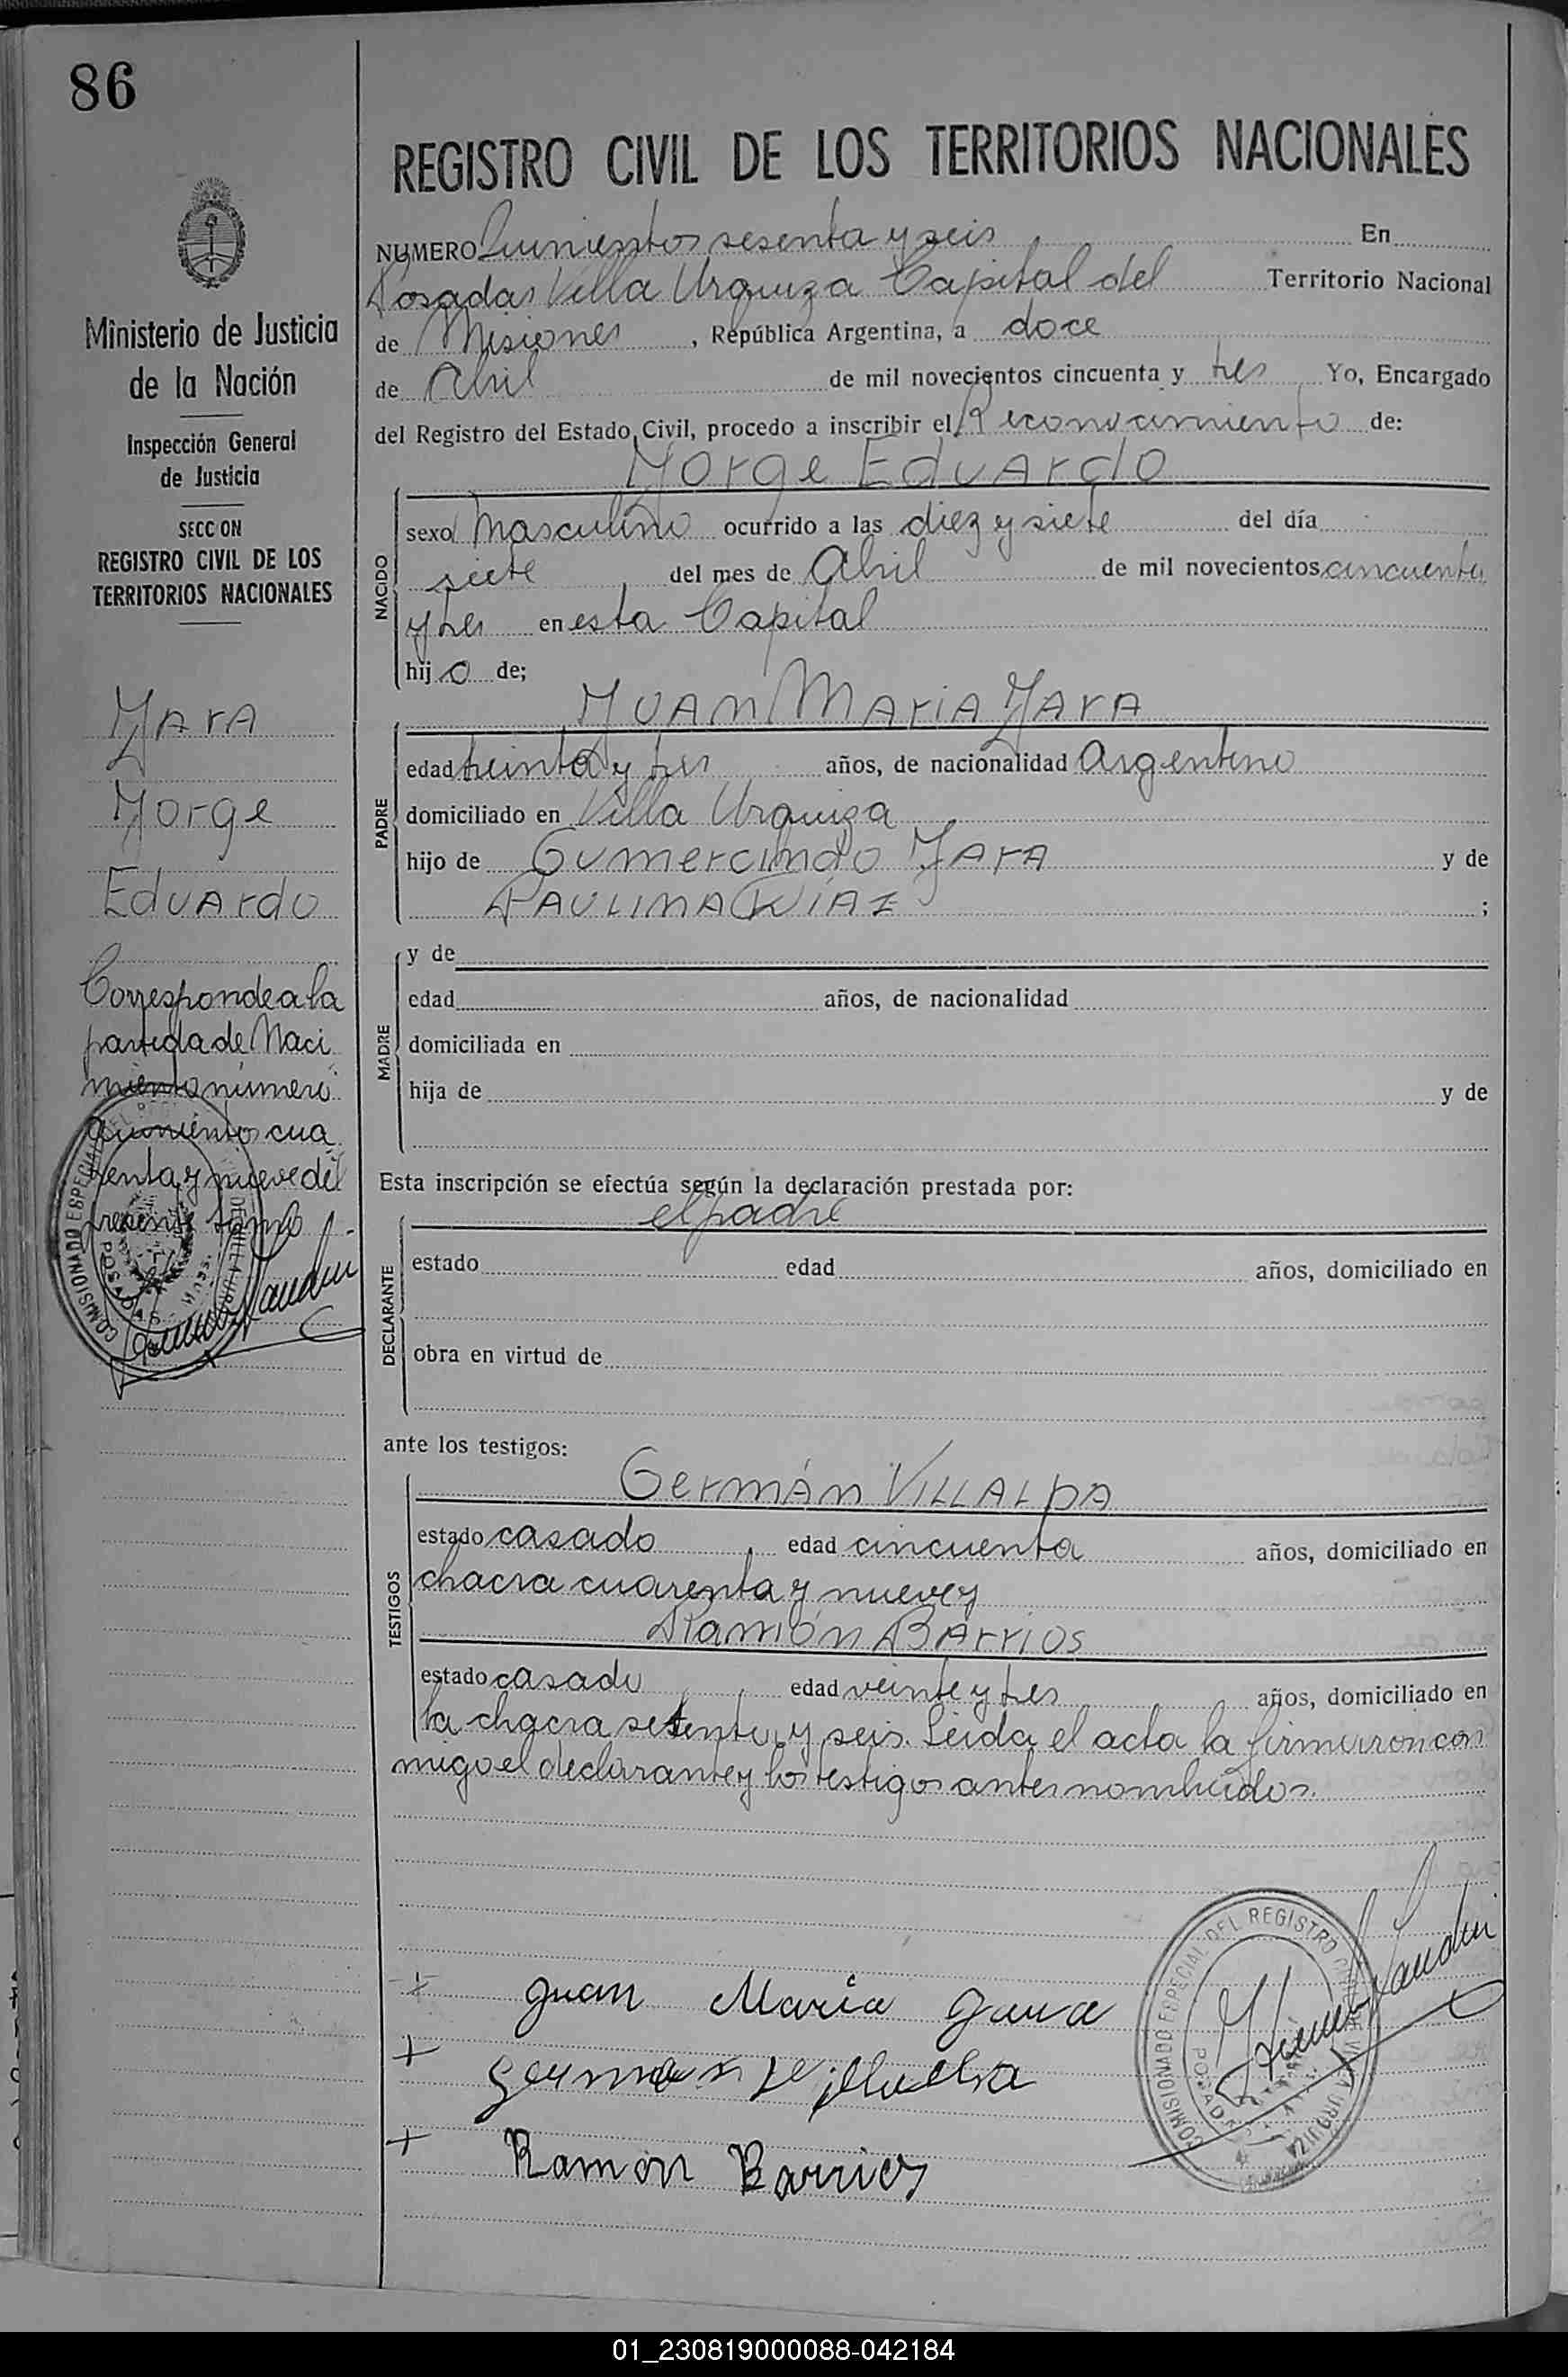 86
REGISTRO CIVIL DE LOS TERRITORIOS NACIONALES
NUMERO Quinientos sesenta y seis En
Posadas Villa Urquiza Capital del Territorio Nacional
de Misiones, República Argentina, a doce
de Abril de mil novecientos cincuenta y tres Yo, Encargado
del Registro del Estado Civil, procedo a inscribir el Reconocimiento de:
Jorge Eduardo
NACIDO
sexo Masculino ocurrido a las diez y siete del día
siete del mes de Abril de mil novecientos cincuenta
y tres en esta Capital
hijo de;
Juan Maria Jara
PADRE
edad treinta y tres años, de nacionalidad Argentino
domiciliado en Villa Urquiza
hijo de Gumercindo Jara y de
Paulina Díaz ;
MADRE
y de
edad años, de nacionalidad
domiciliada en
hija de y de
Esta inscripción se efectúa según la declaración prestada por:
el padre
DECLARANTE
estado edad años, domiciliado en
obra en virtud de
ante los testigos:
Germán Villalba
TESTIGOS
estado casado edad cincuenta años, domiciliado en
chacra cuarenta y nueve y
Ramón Barrios
estado casado edad veinte y tres años, domiciliado en
la chacra setenta y seis. Leida el acta la firmaron con
migo el declarante y los testigos antes nombrados.
Juan Maria Jara
German Villalba
Ramon Barrios
COMISIONADO ESPECIAL DEL REGISTRO
VILLA URQUIZA
POSADAS
Ministerio de Justicia
de la Nación
Inspección General
de Justicia
SECCION
REGISTRO CIVIL DE LOS
TERRITORIOS NACIONALES
Jara
Jorge
Eduardo
Corresponde a la
partida de Naci
miento número
quinientos cua
renta y nueve del
presente tomo
COMISIONADO ESPECIAL DEL
POSADAS
01_230819000088-042184